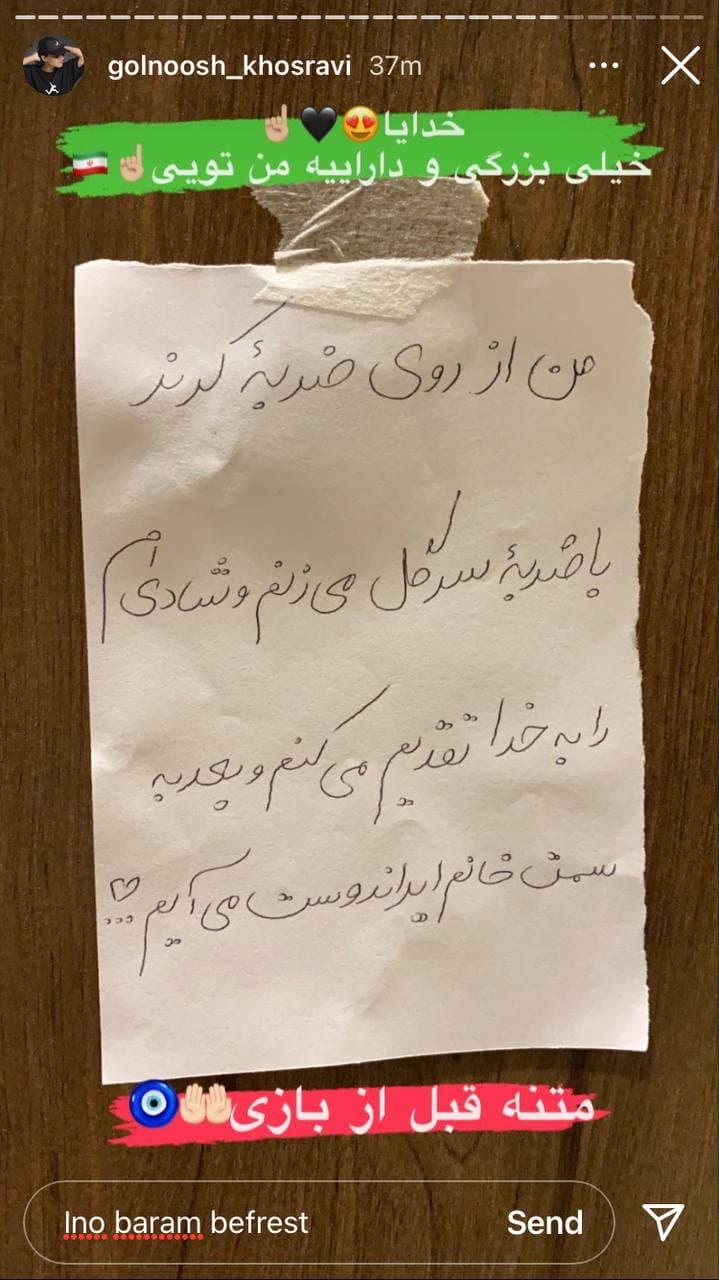 golnoosh_khosravi 37m
خدایا😍🖤☝🏼
خیلی بزرگی و داراییه من تویی☝🏼🇮🇷
من از روی ضربهٔ کرنر
با ضربهٔ سر گل می‌زنم و شادی‌ام
را به خدا تقدیم می‌کنم و بعد به
سمت خانم ایراندوست می‌آیم...♡
متنه قبل از بازی🤲🏼🧿
Ino baram befrest
Send